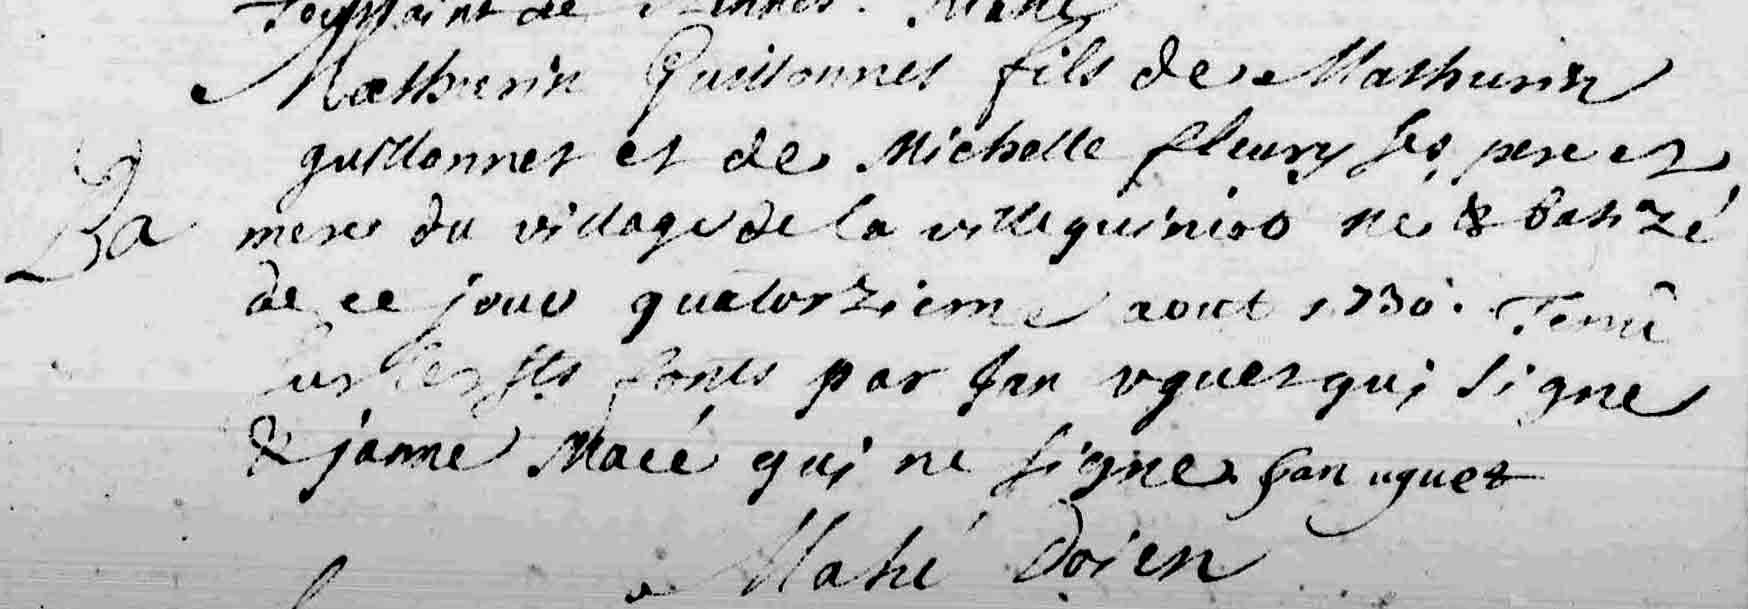 Toussaint de Rennes. Mahé
Mathurin Guillonnet fils de Mathurin
guillonnet et de Michelle fleury ses pere et
Ba mere du village de la ville guiniot né & batizé
de ce jour quatorzieme aout 1730. Tenû
sur les sts fonts par Jan uguet qui signe
& janne Macé qui ne signe. Jan uguet
Mahé Doien